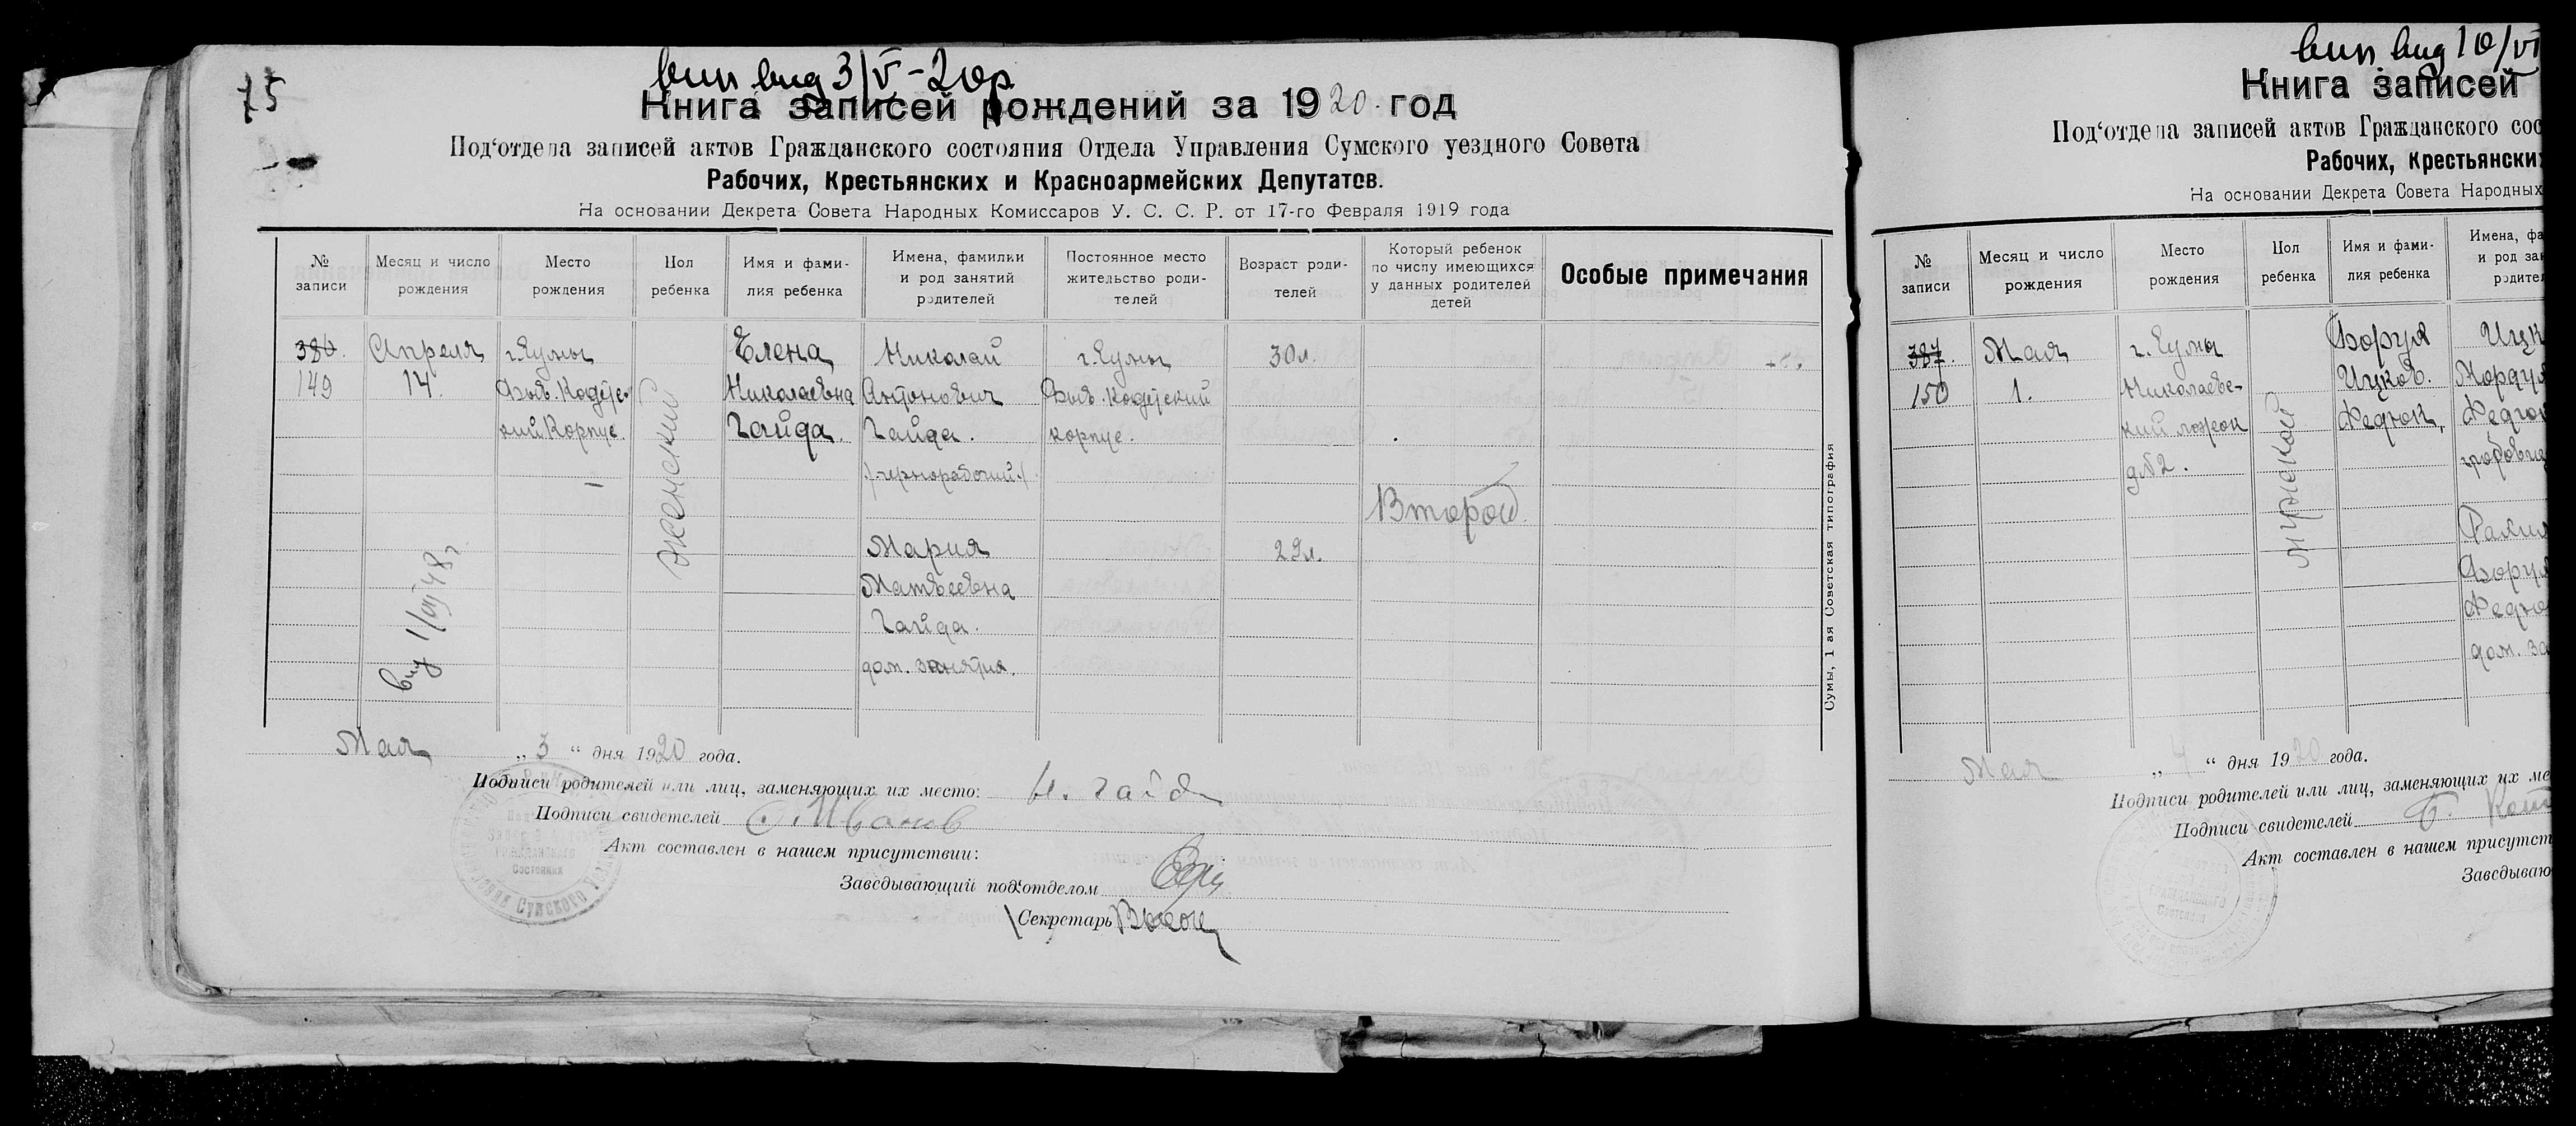 75
вип вид 3/V-20р
Книга записей рождений за 1920. год
Под‘отдела записей актов Гражданского состояния Отдела Управления Сумского уездного Совета
Рабочих, Крестьянских и Красноармейских Депутатов.
На основании Декрета Совета Народных Комиссаров У. С. С. Р. от 17-го Февраля 1919 года
№ записи
Месяц и число рождения
Место рождения
Пол ребенка
Имя и фами- лия ребенка
Имена, фамилии и род занятий родителей
Постоянное место жительство роди- телей
Возраст роди- телей
Который ребенок по числу имеющихся у данных родителей детей
Особые примечания
380.
149
Апреля
14.
г. Сумы
Быв. Кадетс-
кий Корпус.
Женский
Елена
Николаевна
Гайда.
Николай
Антонович
Гайда.
/чернорабочий/
Мария
Матвеевна
Гайда.
дом. занятия.
г. Сумы
Быв. Кадетский
корпус.
30 л.
29 л.
Второй
вид 1/VII 48 г
Сумы, 1 ая Советская типография
Мая „3“ дня 1920 года.
Подписи родителей или лиц, заменяющих их место: Н. Гайда
Подписи свидетелей Иванов
Акт составлен в нашем присутствии:
Заведывающий под‘отделом
Секретарь
вип вид 10/VI
Книга записей
Под‘отдела записей актов Гражданского сос
Рабочих, Крестьянски
На основании Декрета Совета Народных
№ записи
Месяц и число рождения
Место рождения
Пол ребенка
Имя и фами- лия ребенка
Имена, фа
и род за
родител
387.
150
Мая
1.
г. Сумы
Николаевс-
кий
д № 2.
Мужской
Боруля
Ицков.
Федюк,
Ицк
Мордул
Федюк
дом. за
Мая „4“ дня 1920 года.
Подписи родителей или лиц, заменяющих их ме
Подписи свидетелей
Акт составлен в нашем присутст
Заведываю